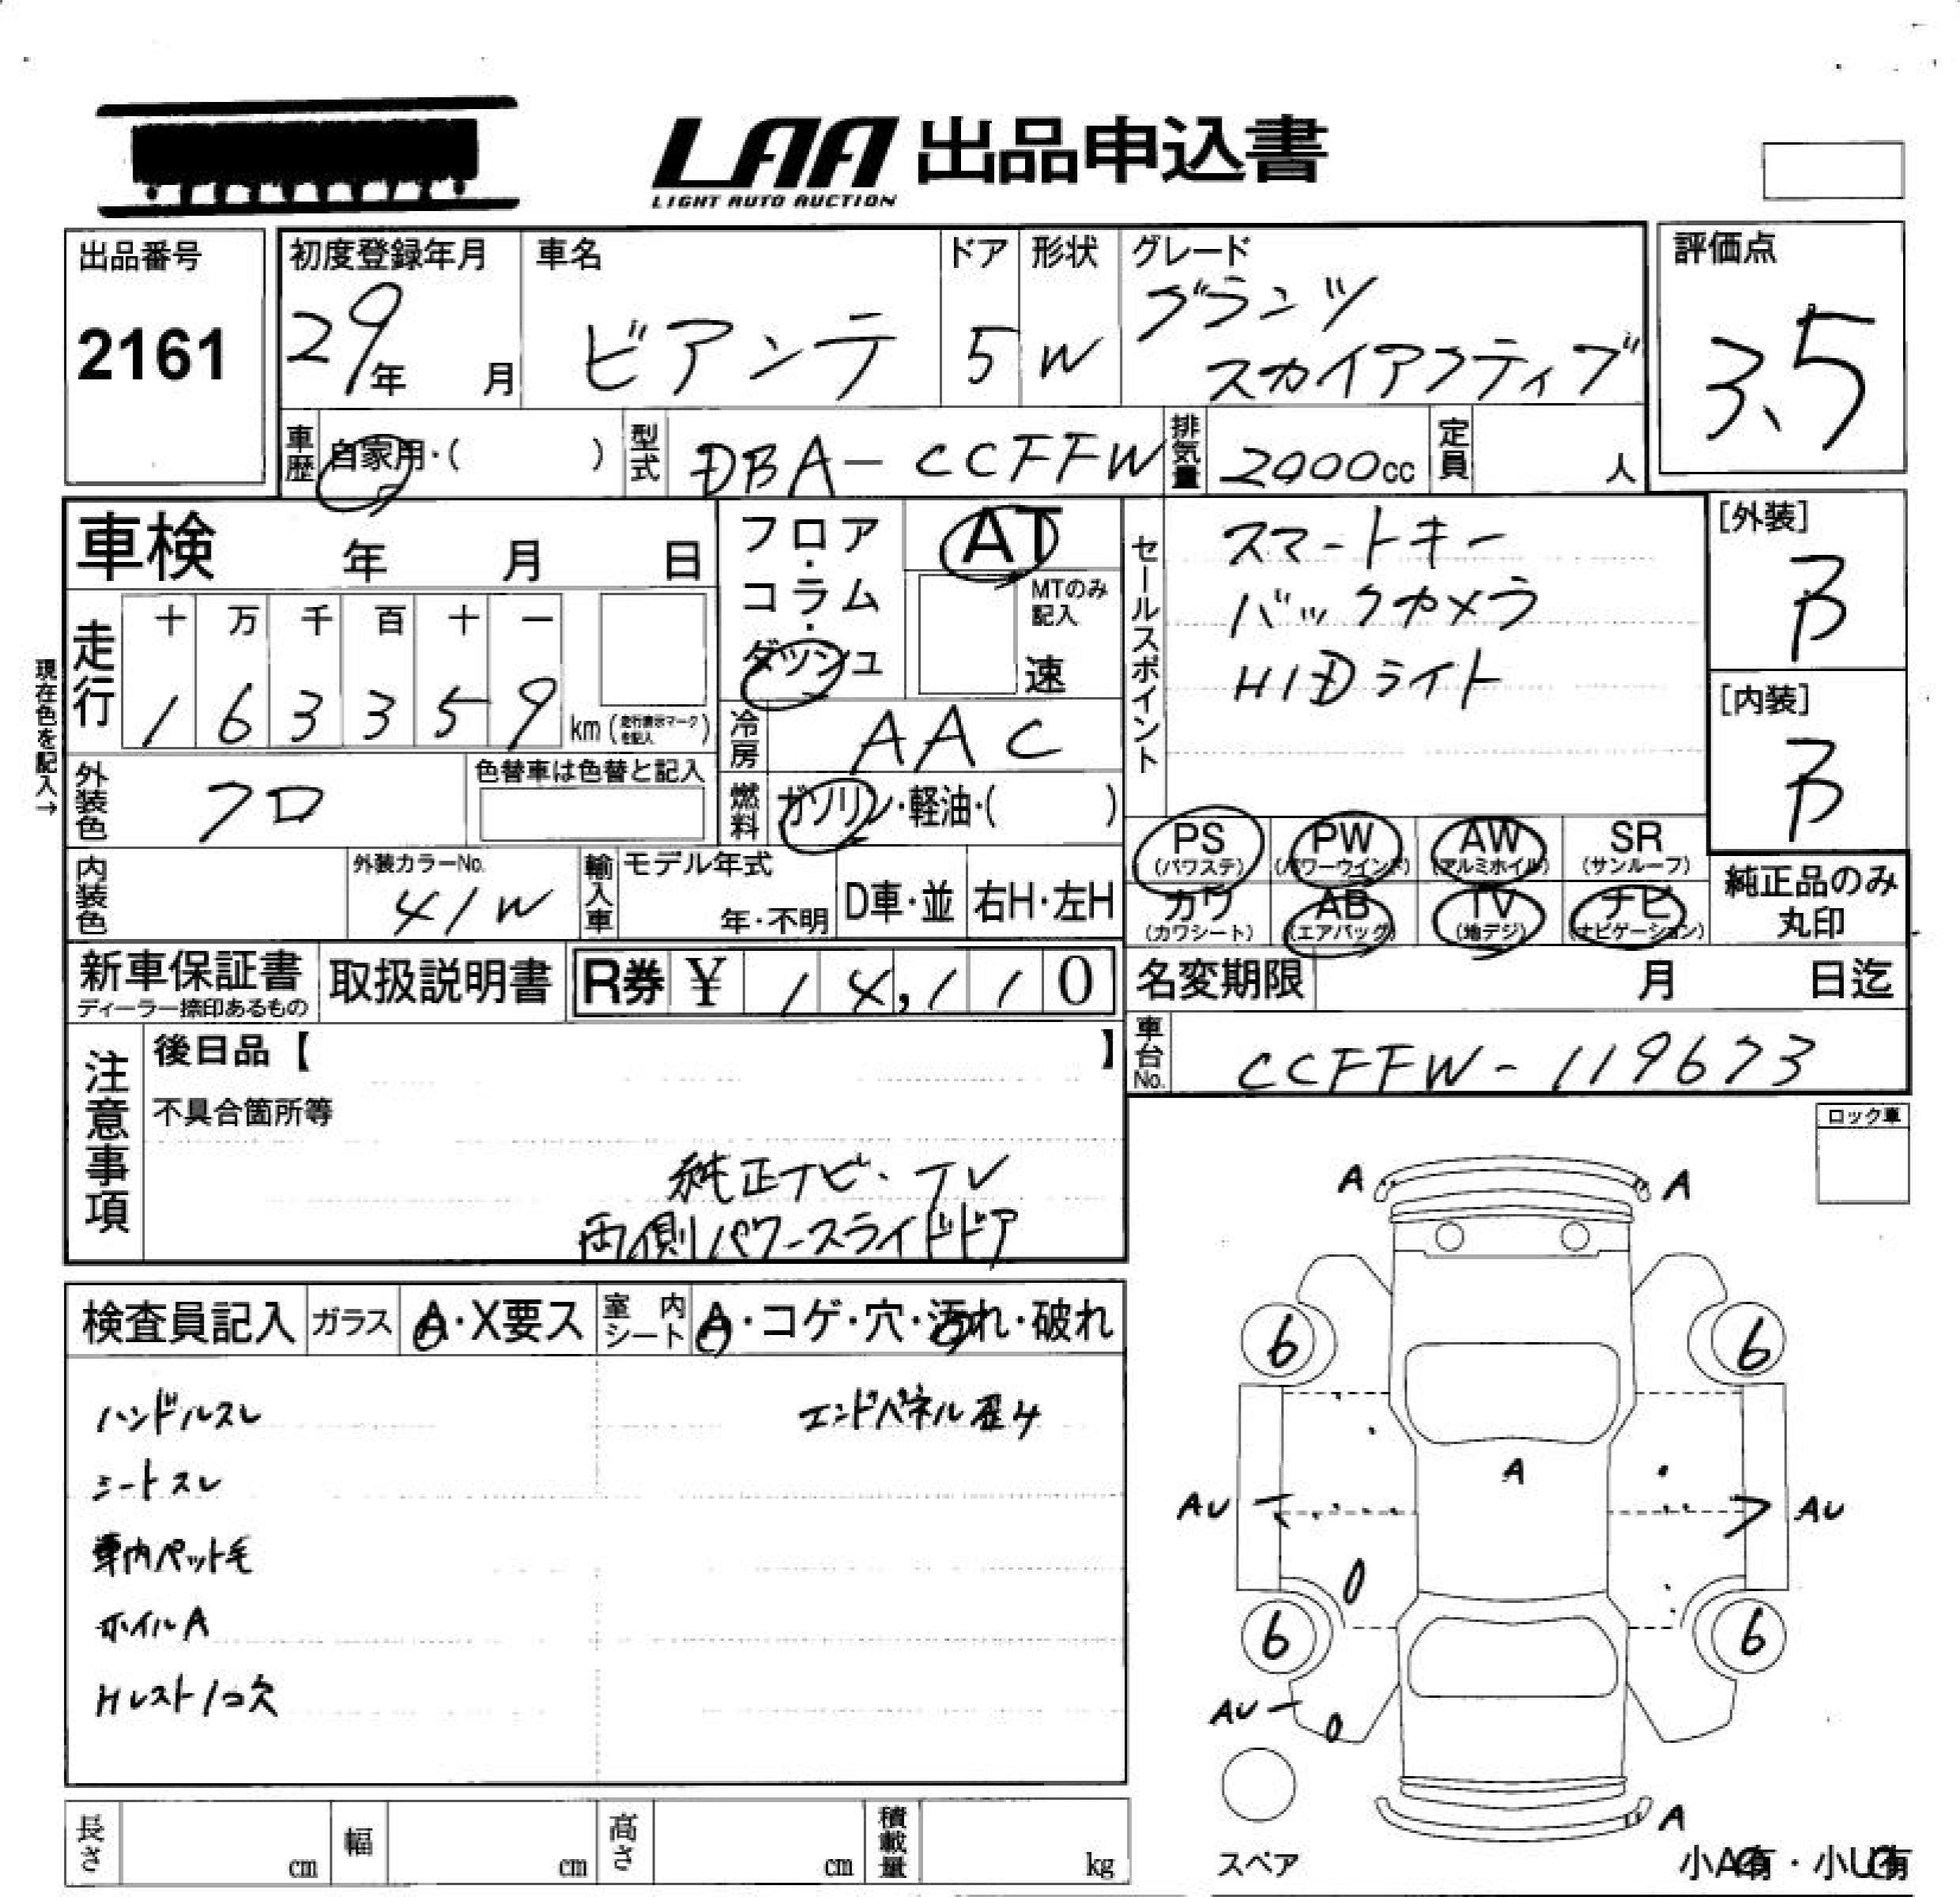 LAA 出品申込書
LIGHT AUTO AUCTION
出品番号
2161
初度登録年月
29年 月
車名
ビアンテ
ドア
5
形状
W
グレード
グランツ
スカイアクティブ
評価点
3.5
車歴 自家用・( )
型式 DBA-CCFFW
排気量 2000cc
定員 人
車検 年 月 日
フロア・コラム・ダッシュ
AT
MTのみ記入
速
セールスポイント
スマートキー
バックカメラ
HIDライト
[外装]
B
[内装]
B
現在色を記入→
走行
十 万 千 百 十 一
1 6 3 3 5 9
km (走行表示マークを記入)
冷房 AAC
外装色 クロ
色替車は色替と記入
燃料 ガソリン・軽油・( )
PS (パワステ)
PW (パワーウインド)
AW (アルミホイル)
SR (サンルーフ)
カワ (カワシート)
AB (エアバッグ)
TV (地デジ)
ナビ (ナビゲーション)
純正品のみ
丸印
内装色
外装カラーNo.
41W
輸入車
モデル年式
年・不明
D車・並
右H・左H
新車保証書
ディーラー捺印あるもの
取扱説明書
R券 ¥ 14,110
名変期限 月 日迄
車台No. CCFFW-119673
注意事項
後日品【 】
不具合箇所等
純正ナビ・TV
両側パワースライドドア
ロック車
検査員記入
ガラス A・X要ス
室内シート A・コゲ・穴・汚れ・破れ
ハンドルスレ
エンドパネル歪み
シートスレ
車内ペット毛
ホイルA
Hレスト1コ欠
A A
6 6
A
AU AU
6 6
AU
A
スペア
小A有・小U有
長さ cm
幅 cm
高さ cm
積載量 kg